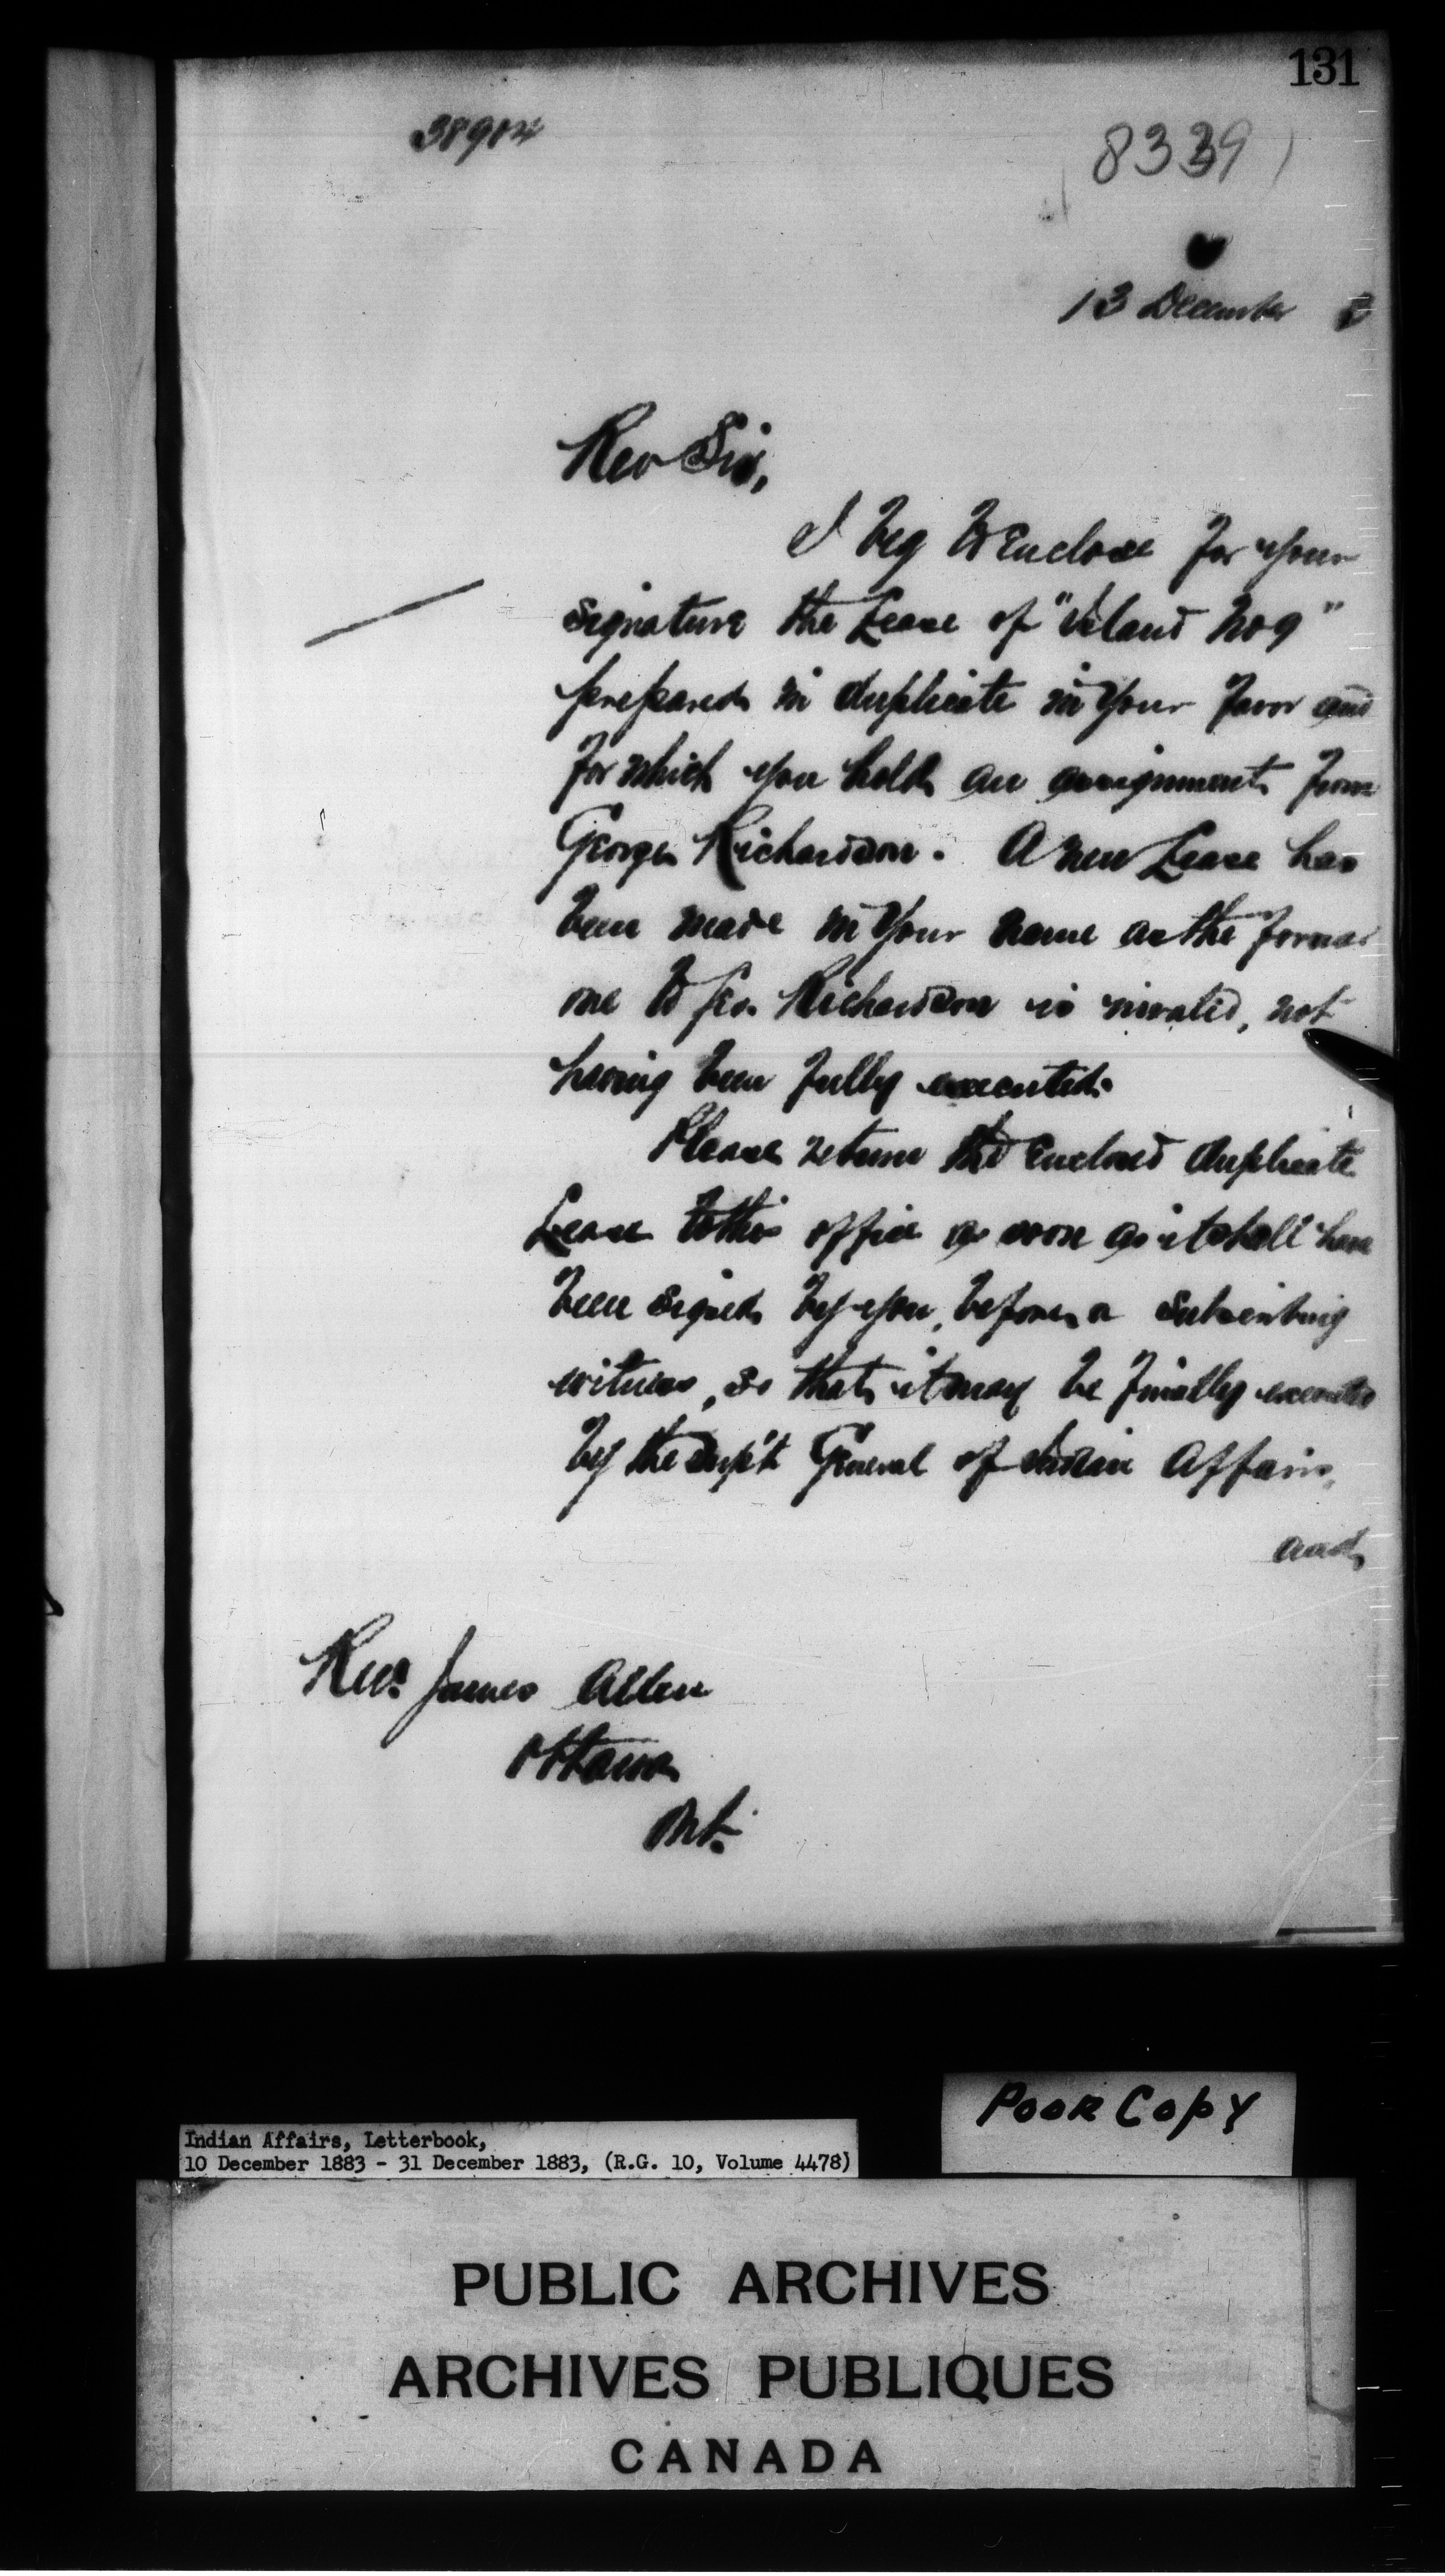 131
38904
8339
13 December 3
Rev Sir,
I beg to Enclose for your
signature the Lease of "Island No 9"
prepared in duplicate in your favor and
for which you hold an assignment from
George Richardson. A new Lease has
been made in your name as the former
one to Geo. Richardson is invalid, not
having been fully executed.
Please return the Enclosed duplicate
Lease to this office as soon as it shall have
been signed by you, before a Subscribing
witness, so that it may be finally executed
by the Sup't General of Indian Affairs,
and
Revd. James Allen
Ottawa
Ont.
Poor Copy
Indian Affairs, Letterbook,
10 December 1883 - 31 December 1883, (R.G. 10, Volume 4478)
PUBLIC ARCHIVES
ARCHIVES PUBLIQUES
CANADA